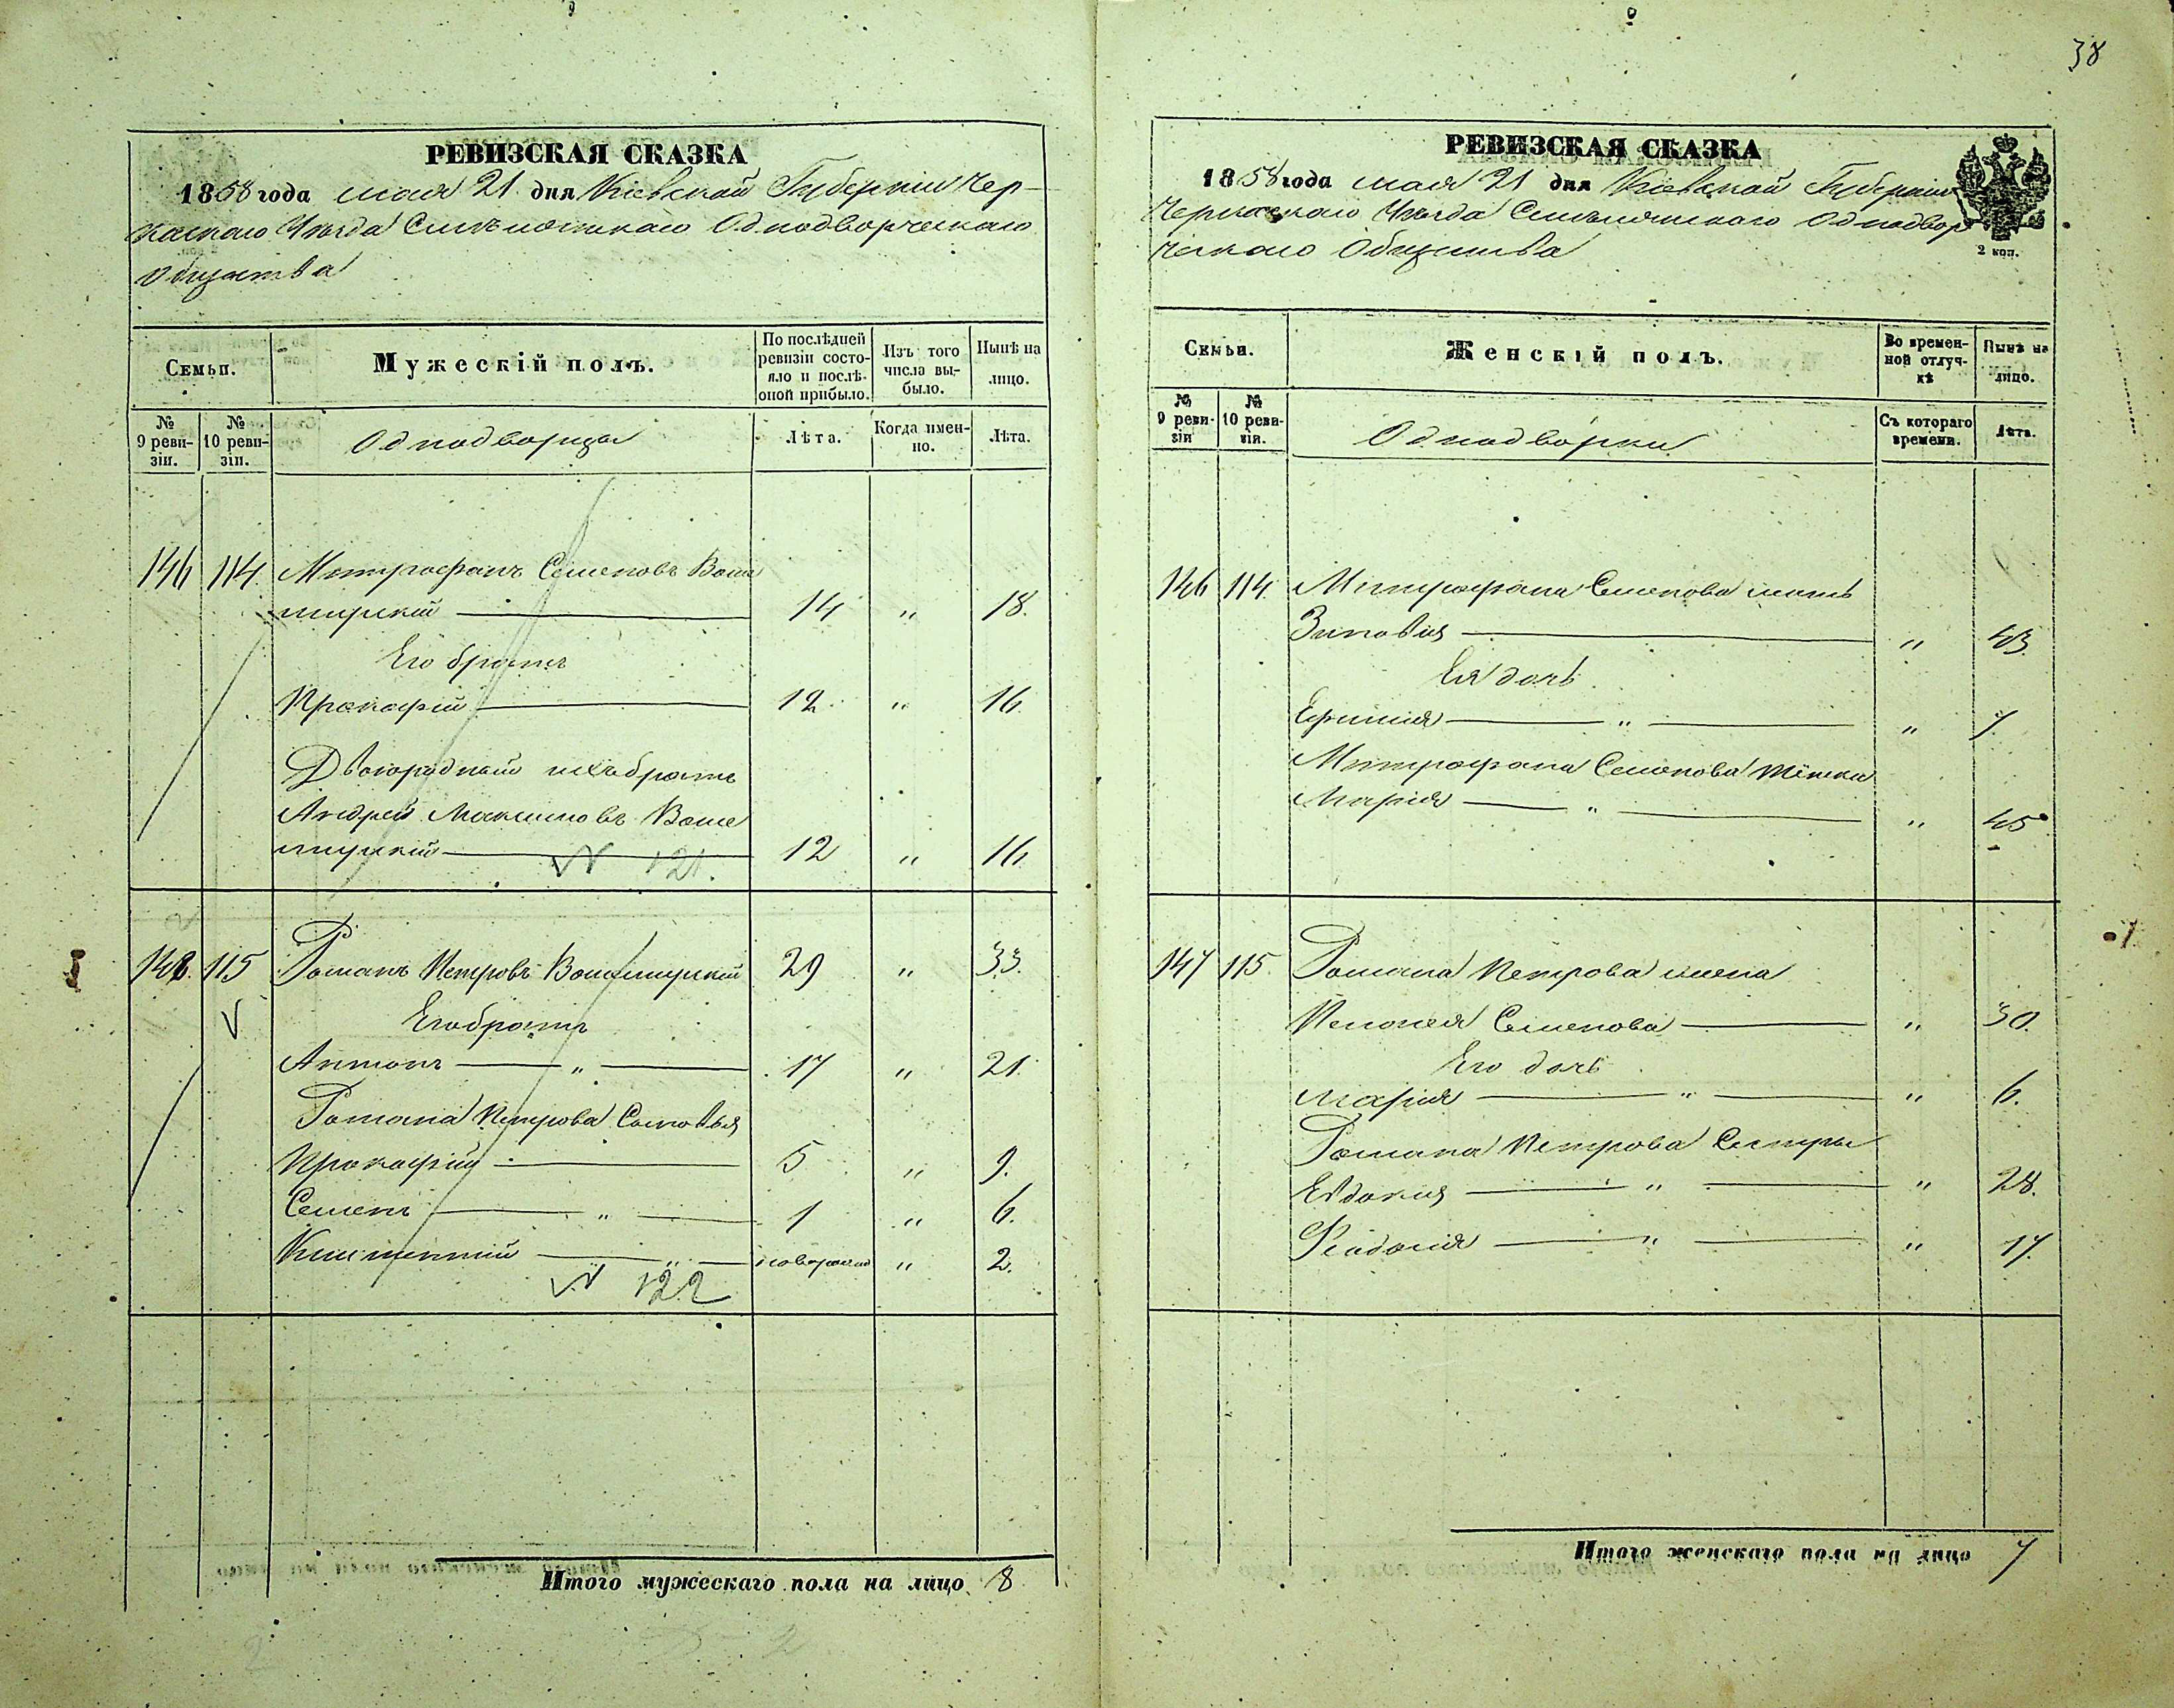 38
РЕВИЗСКАЯ СКАЗКА
1858 года мая 21 дня Кіевской Губерніи Чер-
каскаго Уѣзда Смѣлянскаго Однодворческаго
Общества
Семьи.
Мужескій полъ.
По послѣдней ревизіи состояло и послѣ оной прибыло.
Изъ того числа выбыло.
Нынѣ на лицо.
№ 9 ревизіи.
№ 10 ревизіи.
Однодворцы
Лѣта.
Когда именно.
Лѣта.
146 114. Митрофанъ Семеновъ
14 " 18.
Его братъ
Прокофій 12. " 16.
Двоюродный ихъ братъ
Андрей Максимовъ
12 " 16.
N 121.
148. 115 Романъ Петровъ 29 " 33.
V
Его братъ
Антонъ " 17 " 21.
Романа Петрова Сыновья
Прокофій 5 " 9.
Семенъ " 1 " 6.
" " 2.
N 122
Итого мужескаго пола на лицо 8
РЕВИЗСКАЯ СКАЗКА
1858 года мая 21 дня Кіевской Губерніи
Черкаскаго Уѣзда Смѣлянскаго Однодвор
ческаго Общества
2 коп.
Семьи.
Женскій полъ.
Во временной отлучкѣ
Нынѣ на лицо.
№ 9 ревизіи
№ 10 ревизіи.
Однодворки
Съ котораго времени.
Лѣта.
146 114. Митрофана Семенова мать
Зиновія " 43.
Ея дочь
" " 7.
Митрофана Семенова тётка
Марія " " 45
147 115. Романа Петрова жена
Семенова " 30.
Его дочь
Марія " " 6.
Романа Петрова Сестры
Евдокия " " 28.
Феодосия " " 17.
Итого женскаго пола на лицо 7